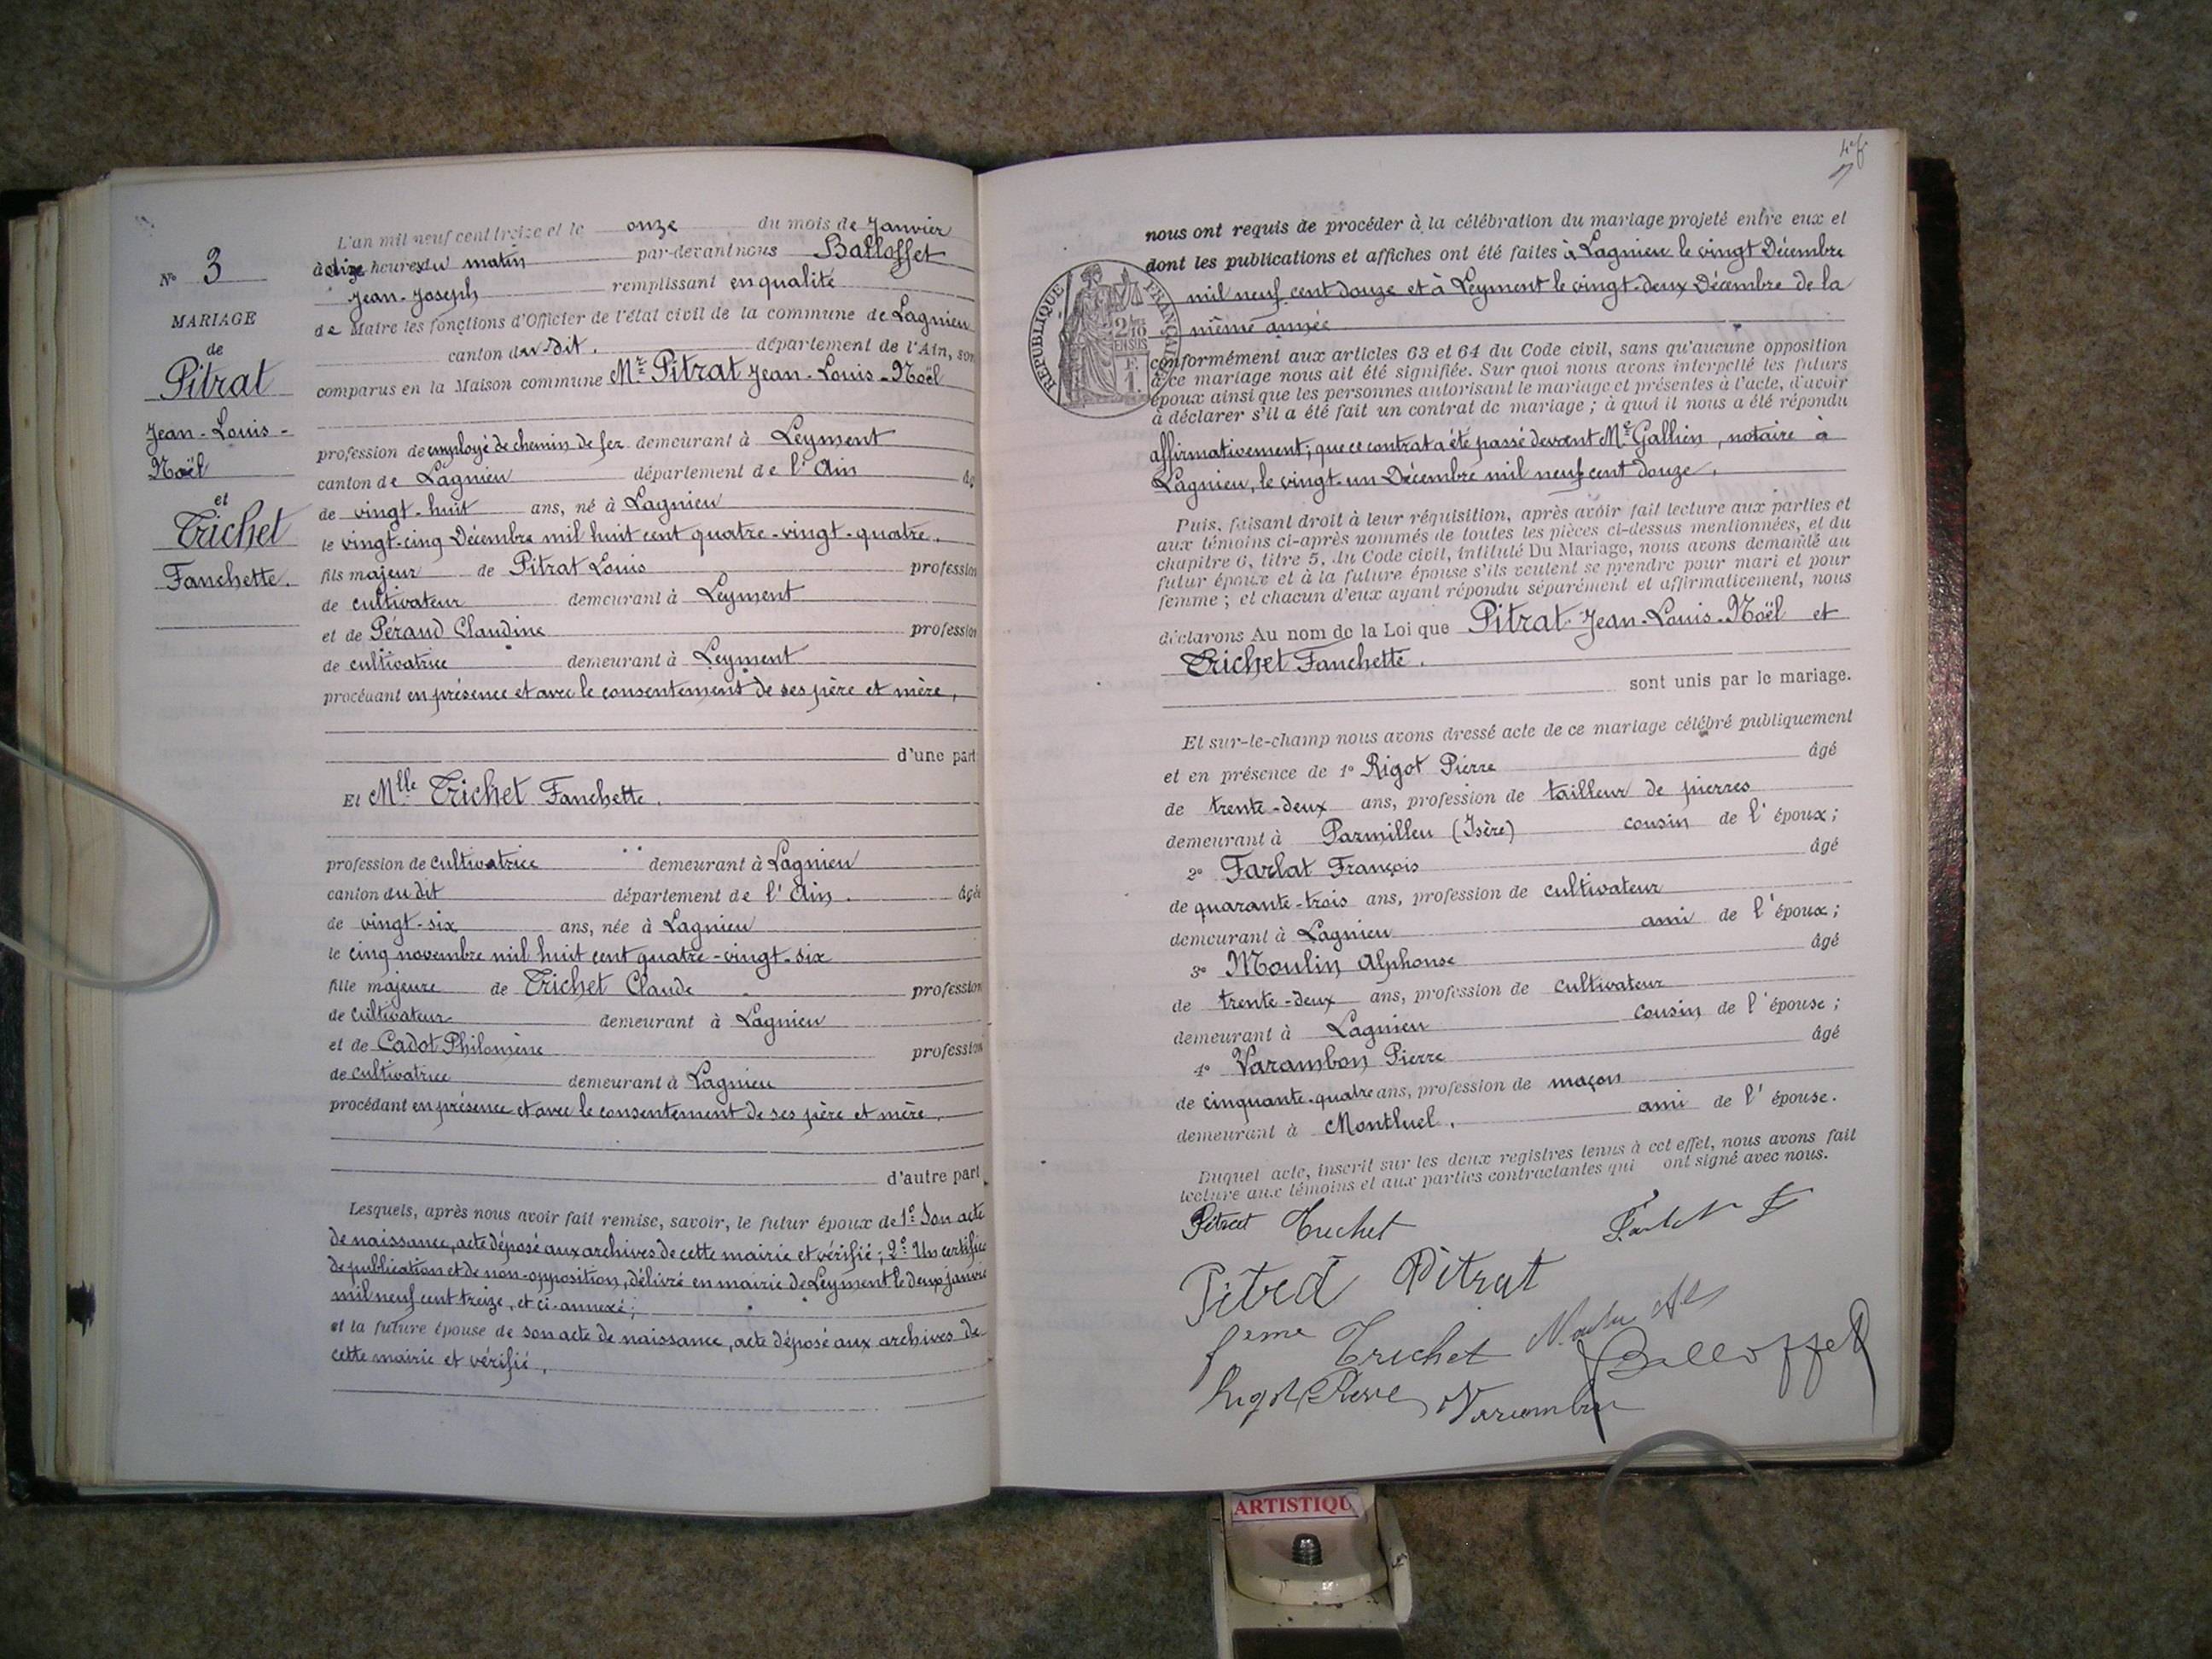 N° 3
MARIAGE
de
Pitrat
Jean-Louis-
Noël
et
Trichet
Fanchette.
L'an mil neuf cent treize et le onze du mois de Janvier
à dix heures du matin par-devant nous Balloffet
Jean-Joseph remplissant en qualité
de Maire les fonctions d'Officier de l'état civil de la commune de Lagnieu
canton du dit. département de l'Ain, son
comparus en la Maison commune Mr Pitrat Jean-Louis-Noël
profession de employé de chemin de fer demeurant à Leyment
canton de Lagnieu département de l'Ain âg
de vingt-huit ans, né à Lagnieu
le vingt-cinq Décembre mil huit cent quatre-vingt-quatre.
fils majeur de Pitrat Louis profession
de cultivateur demeurant à Leyment
et de Péraud Claudine profession
de cultivatrice demeurant à Leyment
procédant en présence et avec le consentement de ses père et mère,
d'une part
Et Mlle Trichet Fanchette.
profession de cultivatrice demeurant à Lagnieu
canton du dit département de l'Ain. âgée
de vingt-six ans, née à Lagnieu
le cinq novembre mil huit cent quatre-vingt-six
fille majeure de Trichet Claude profession
de cultivateur demeurant à Lagnieu
et de Cadot Philomène profession
de cultivatrice demeurant à Lagnieu
procédant en présence et avec le consentement de ses père et mère.
d'autre part
Lesquels, après nous avoir fait remise, savoir, le futur époux de 1° Son acte
de naissance, acte déposé aux archives de cette mairie et vérifié; 2° Un certific
de publication et de non-opposition, délivré en mairie de Leyment le deux janvie
mil neuf cent treize, et ci-annexé;
et la future épouse de son acte de naissance, acte déposé aux archives de
cette mairie et vérifié,
nous ont requis de procéder à la célébration du mariage projeté entre eux et
dont les publications et affiches ont été faites à Lagnieu le vingt Décembre
mil neuf cent douze et à Leyment le vingt-deux Décembre de la
même année
RÉPUBLIQUE FRANÇAISE
2/10
EN SUS
F.
1.
conformément aux articles 63 et 64 du Code civil, sans qu'aucune opposition
à ce mariage nous ait été signifiée. Sur quoi nous avons interpellé les futurs
époux ainsi que les personnes autorisant le mariage et présentes à l'acte, d'avoir
à déclarer s'il a été fait un contrat de mariage ; à quoi il nous a été répondu
affirmativement; que ce contrat a été passé devant Me Gallien, notaire à
Lagnieu, le vingt-un Décembre mil neuf cent douze.
Puis, faisant droit à leur réquisition, après avoir fait lecture aux parties et
aux témoins ci-après nommés de toutes les pièces ci-dessus mentionnées, et du
chapitre 6, titre 5, du Code civil, intitulé Du Mariage, nous avons demandé au
futur époux et à la future épouse s'ils veulent se prendre pour mari et pour
femme ; et chacun d'eux ayant répondu séparément et affirmativement, nous
déclarons Au nom de la Loi que Pitrat Jean-Louis-Noël et
Trichet Fanchette.
sont unis par le mariage.
Et sur-le-champ nous avons dressé acte de ce mariage célébré publiquement
et en présence de 1° Rigot Pierre âgé
de trente-deux ans, profession de tailleur de pierres
demeurant à Parmilieu (Isère) cousin de l'époux;
2° Farlat François âgé
de quarante-trois ans, profession de cultivateur
demeurant à Lagnieu ami de l'époux;
3° Moulin Alphonse âgé
de trente-deux ans, profession de cultivateur
demeurant à Lagnieu cousin de l'épouse;
4° Varambon Pierre âgé
de cinquante-quatre ans, profession de maçon
demeurant à Montluel. ami de l'épouse.
Duquel acte, inscrit sur les deux registres tenus à cet effet, nous avons fait
lecture aux témoins et aux parties contractantes qui ont signé avec nous.
Pitrat Trichet
Pitrat Pitrat
feme Trichet Balloffet
Rigot Pierre Varambon
ARTISTIQU